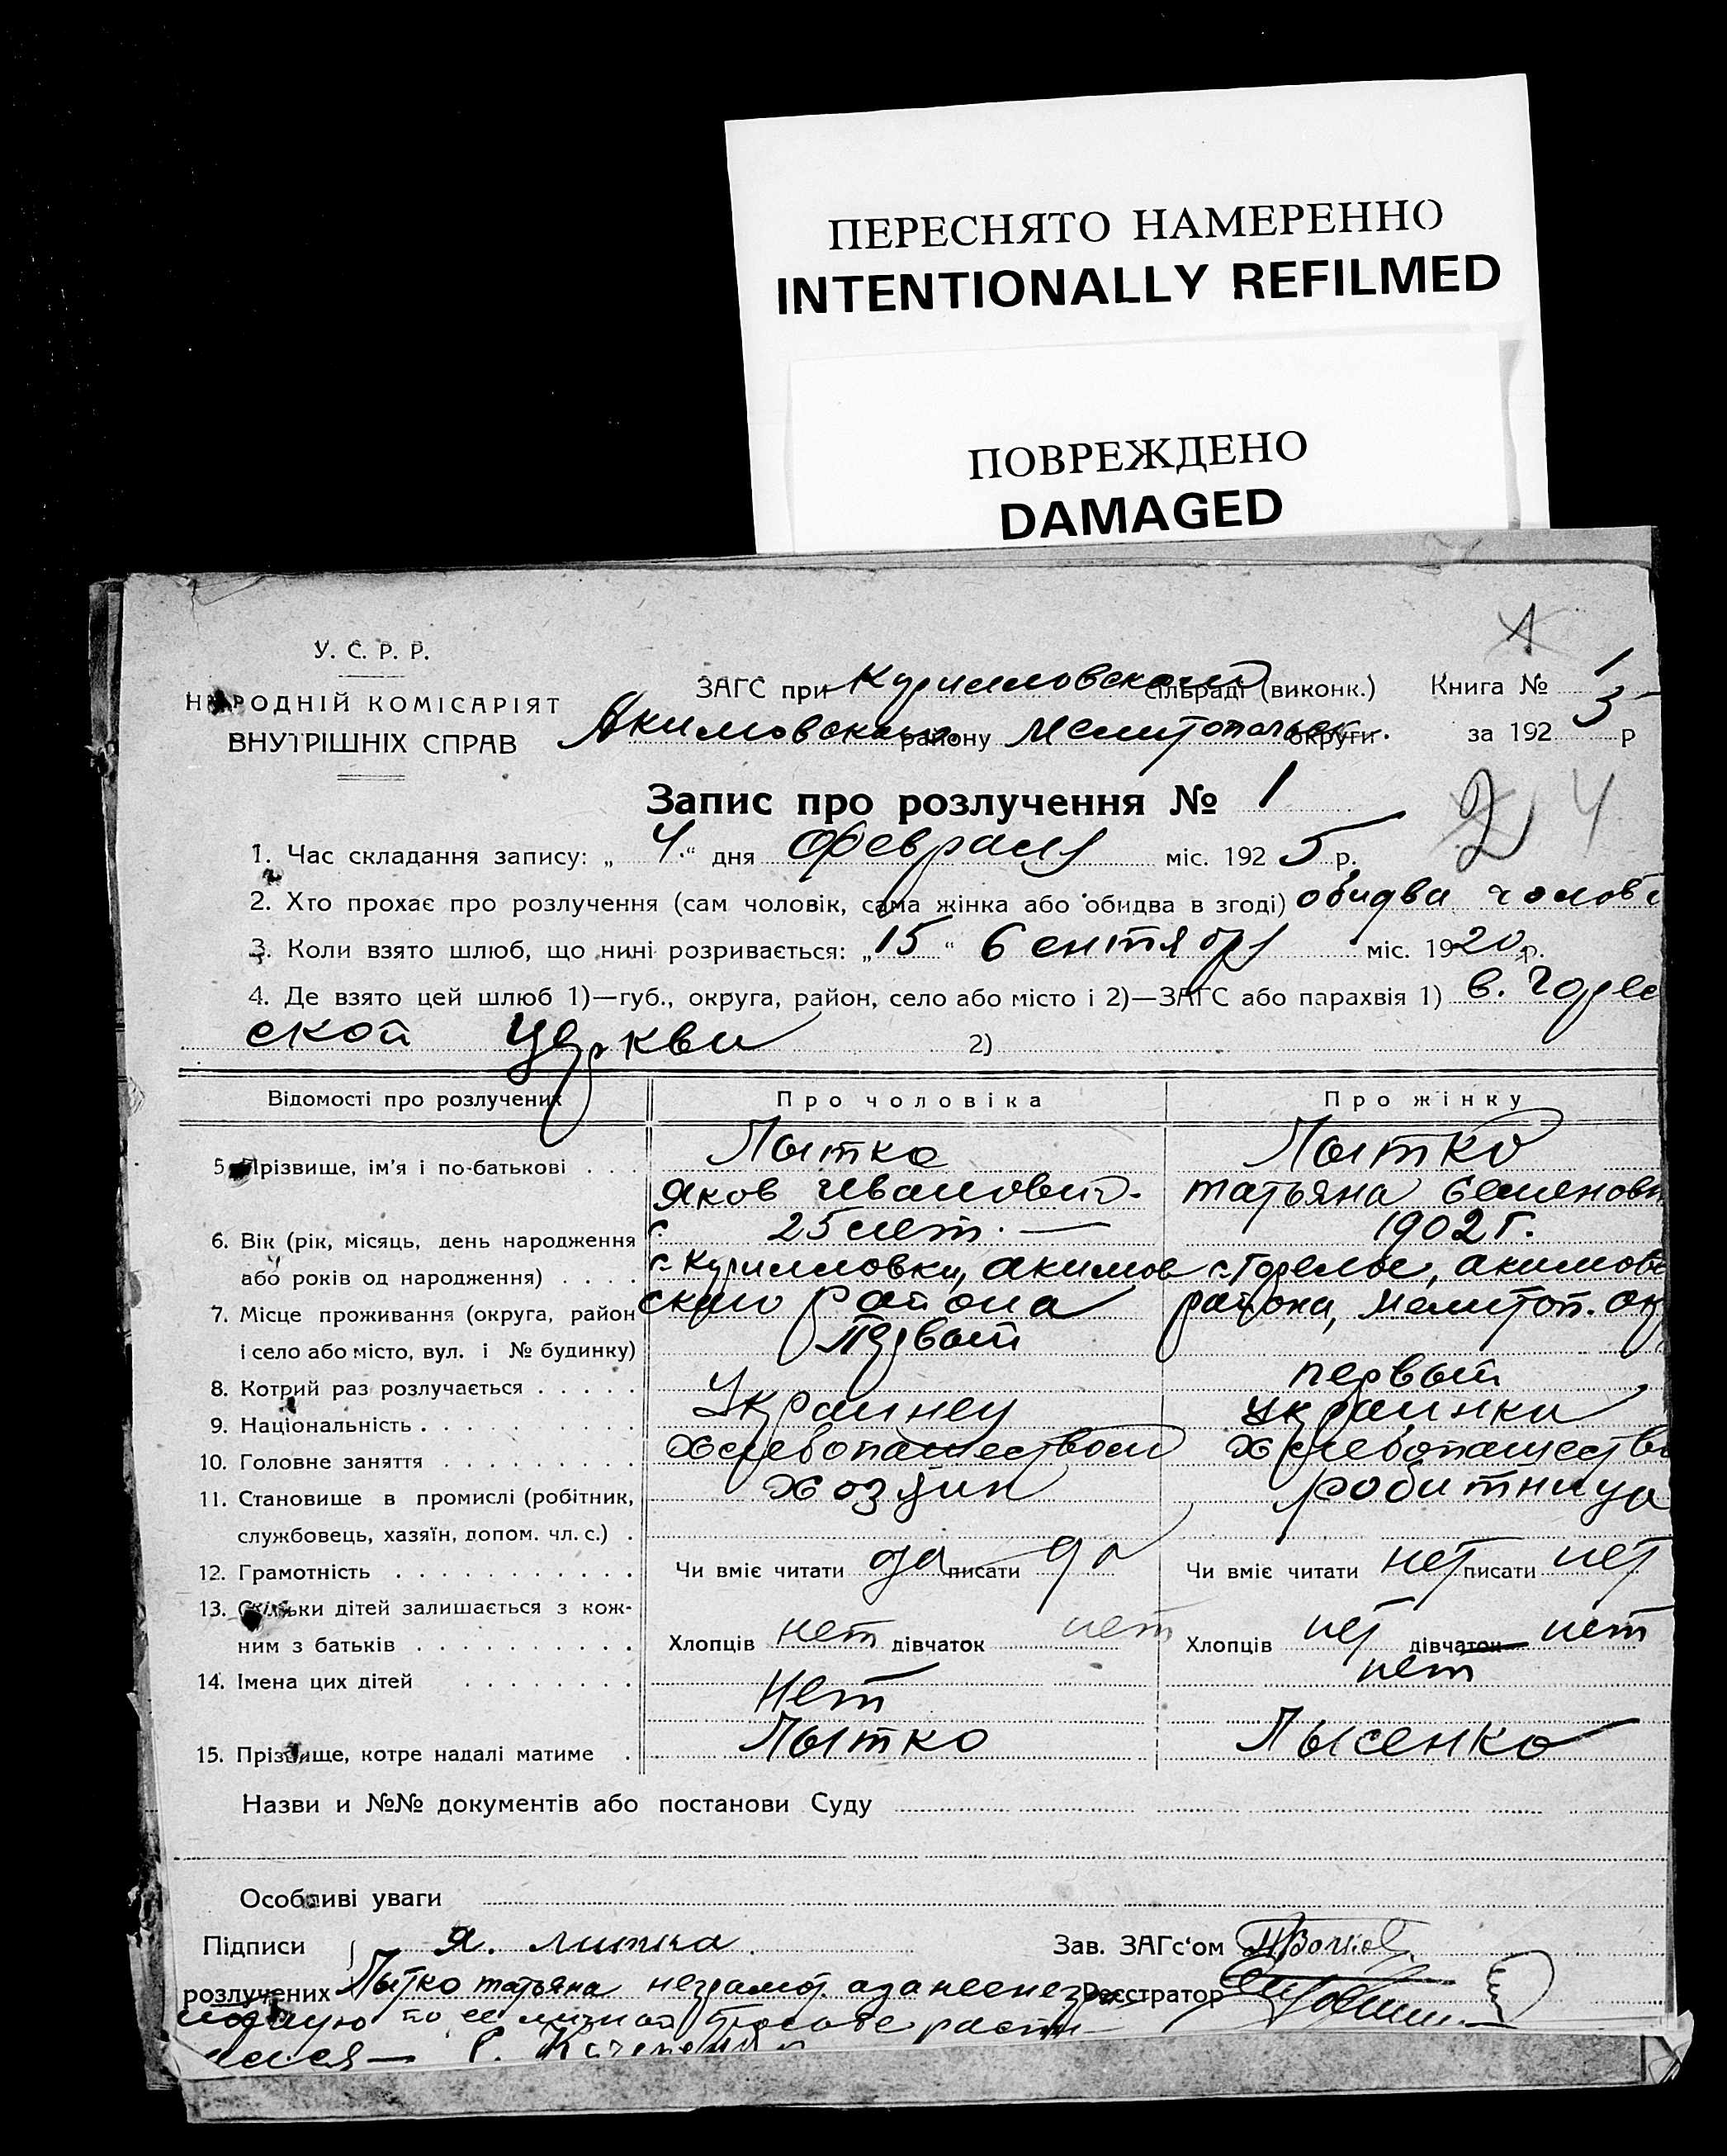 ПЕРЕСНЯТО НАМЕРЕННО
INTENTIONALLY REFILMED
ПОВРЕЖДЕНО
DAMAGED
У. С. Р. Р.
НАРОДНІЙ КОМІСАРІЯТ
ВНУТРІШНІХ СПРАВ
ЗАГС при Курилловской сільраді (виконк.) Книга № 1
Акимовского району Мелитопольск. округи за 192 5 р
Запис про розлучення № 1
2 4
1. Час складання запису: „ 4. “ дня Февраля міс. 192 5 р.
2. Хто прохає про розлучення (сам чоловік, сама жінка або обидва в згоді) обидва чолові
3. Коли взято шлюб, що нині розривається: „ 15 “ Сентября міс. 1920 р.
4. Де взято цей шлюб 1)—губ., округа, район, село або місто і 2)—ЗАГС або парахвія 1) в. Горел
ской церкви 2)
Відомості про розлучених Про чоловіка Про жінку
5. Прізвище, ім'я і по-батькові . . . Лытко Лытко
Яков Иванович. татьяна Семеновн
6. Вік (рік, місяць, день народження 25 лет. — 1902 г.
або років од народження) . . . . с. Курилловки, акимов с. Горелое, акимовс
7. Місце проживання (округа, район ского района района, Мелитоп. ок
і село або місто, вул. і № будинку) Первый
8. Котрий раз розлучається . . . . . первый
9. Національність . . . . . . . . . Украинец украинка
10. Головне заняття . . . . . . . . . хлебопашеством хлебопашеств
11. Становище в промислі (робітник, хозяин робитница
службовець, хазяїн, допом. чл. с.) .
12. Грамотність . . . . . . . . . . . Чи вміє читати да писати да Чи вміє читати нет писати нет
13. Скільки дітей залишається з кож-
ним з батьків . . . . . . . . . . Хлопців нет дівчаток нет Хлопців нет дівчаток нет
14. Імена цих дітей . . . . . . . . Нет нет
15. Прізвище, котре надалі матиме . Лытко Лысенко
Назви и №№ документів або постанови Суду
Особливі уваги
Підписи Я. Литка Зав. ЗАГс‘ом
розлучених Лытко татьяна неграмот а за нее Реєстратор
по ее личной прозьбе расп